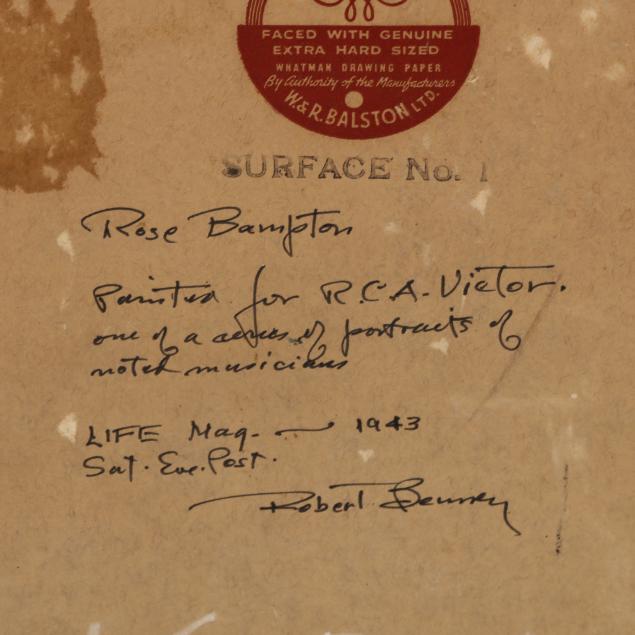 FACED WITH GENUINE
EXTRA HARD SIZED
WHATMAN DRAWING PAPER
By Authority of the Manufacturers
W. & R. BALSTON LTD.
SURFACE No. 1
Rose Bampton
Painted for R.C.A. Victor.
one of a series of portraits of
noted musicians
LIFE Mag. — 1943
Sat. Eve. Post.
Robert Benney